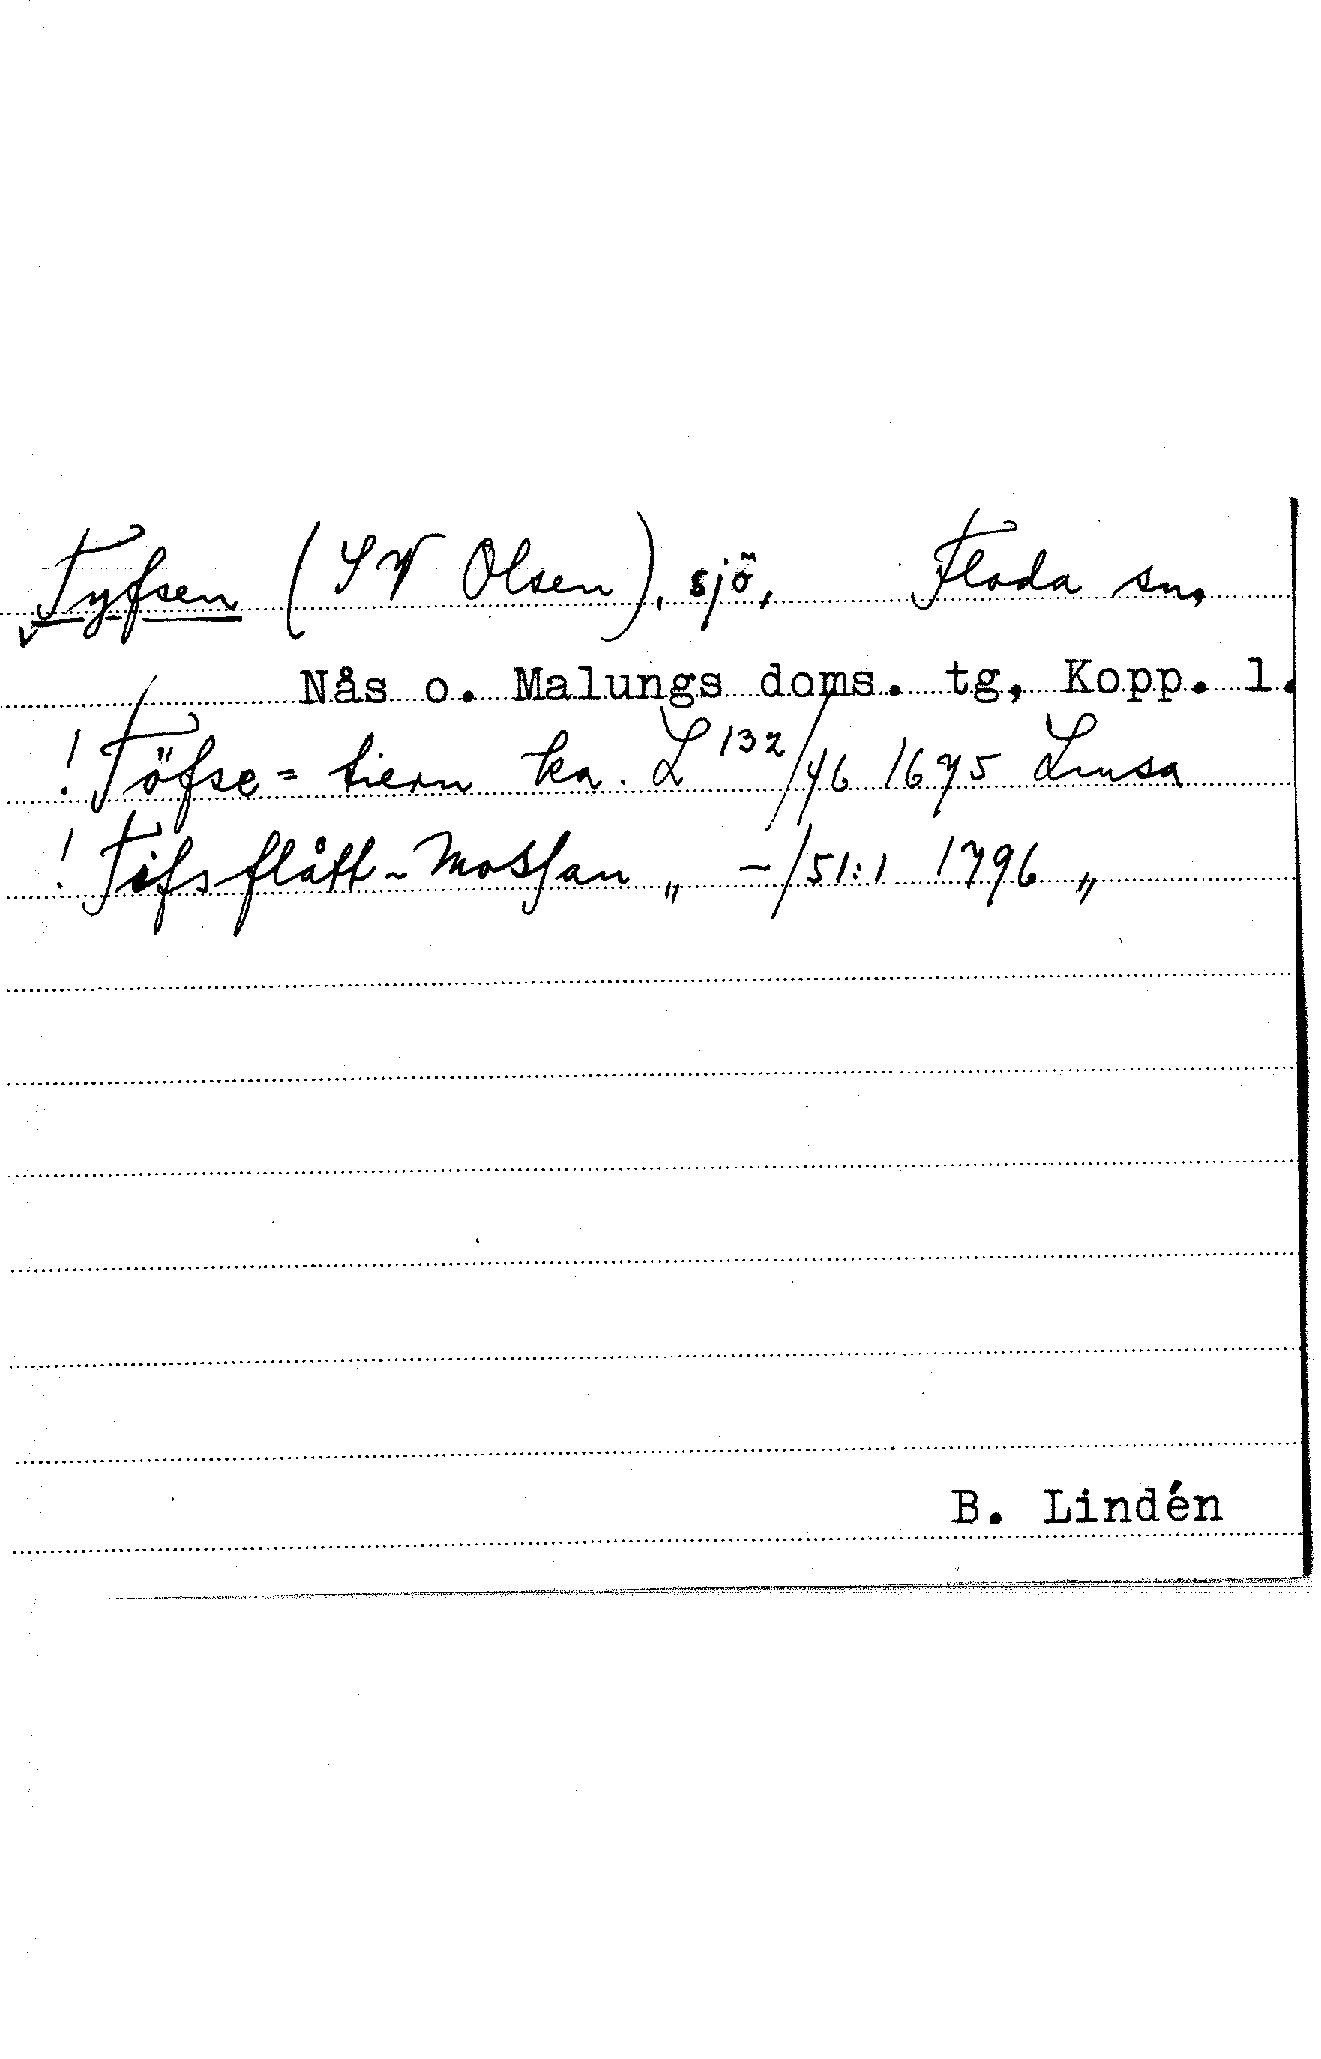 Tyfsen (SV Olsen), sjö, Floda sn,
Nås o. Malungs doms. tg, Kopp. l.
! Töfse = tiern ka. L 132/46 1675 Lmsa
! Tifsflått-Mossan „ -/51:1 1796 „
B. Lindén